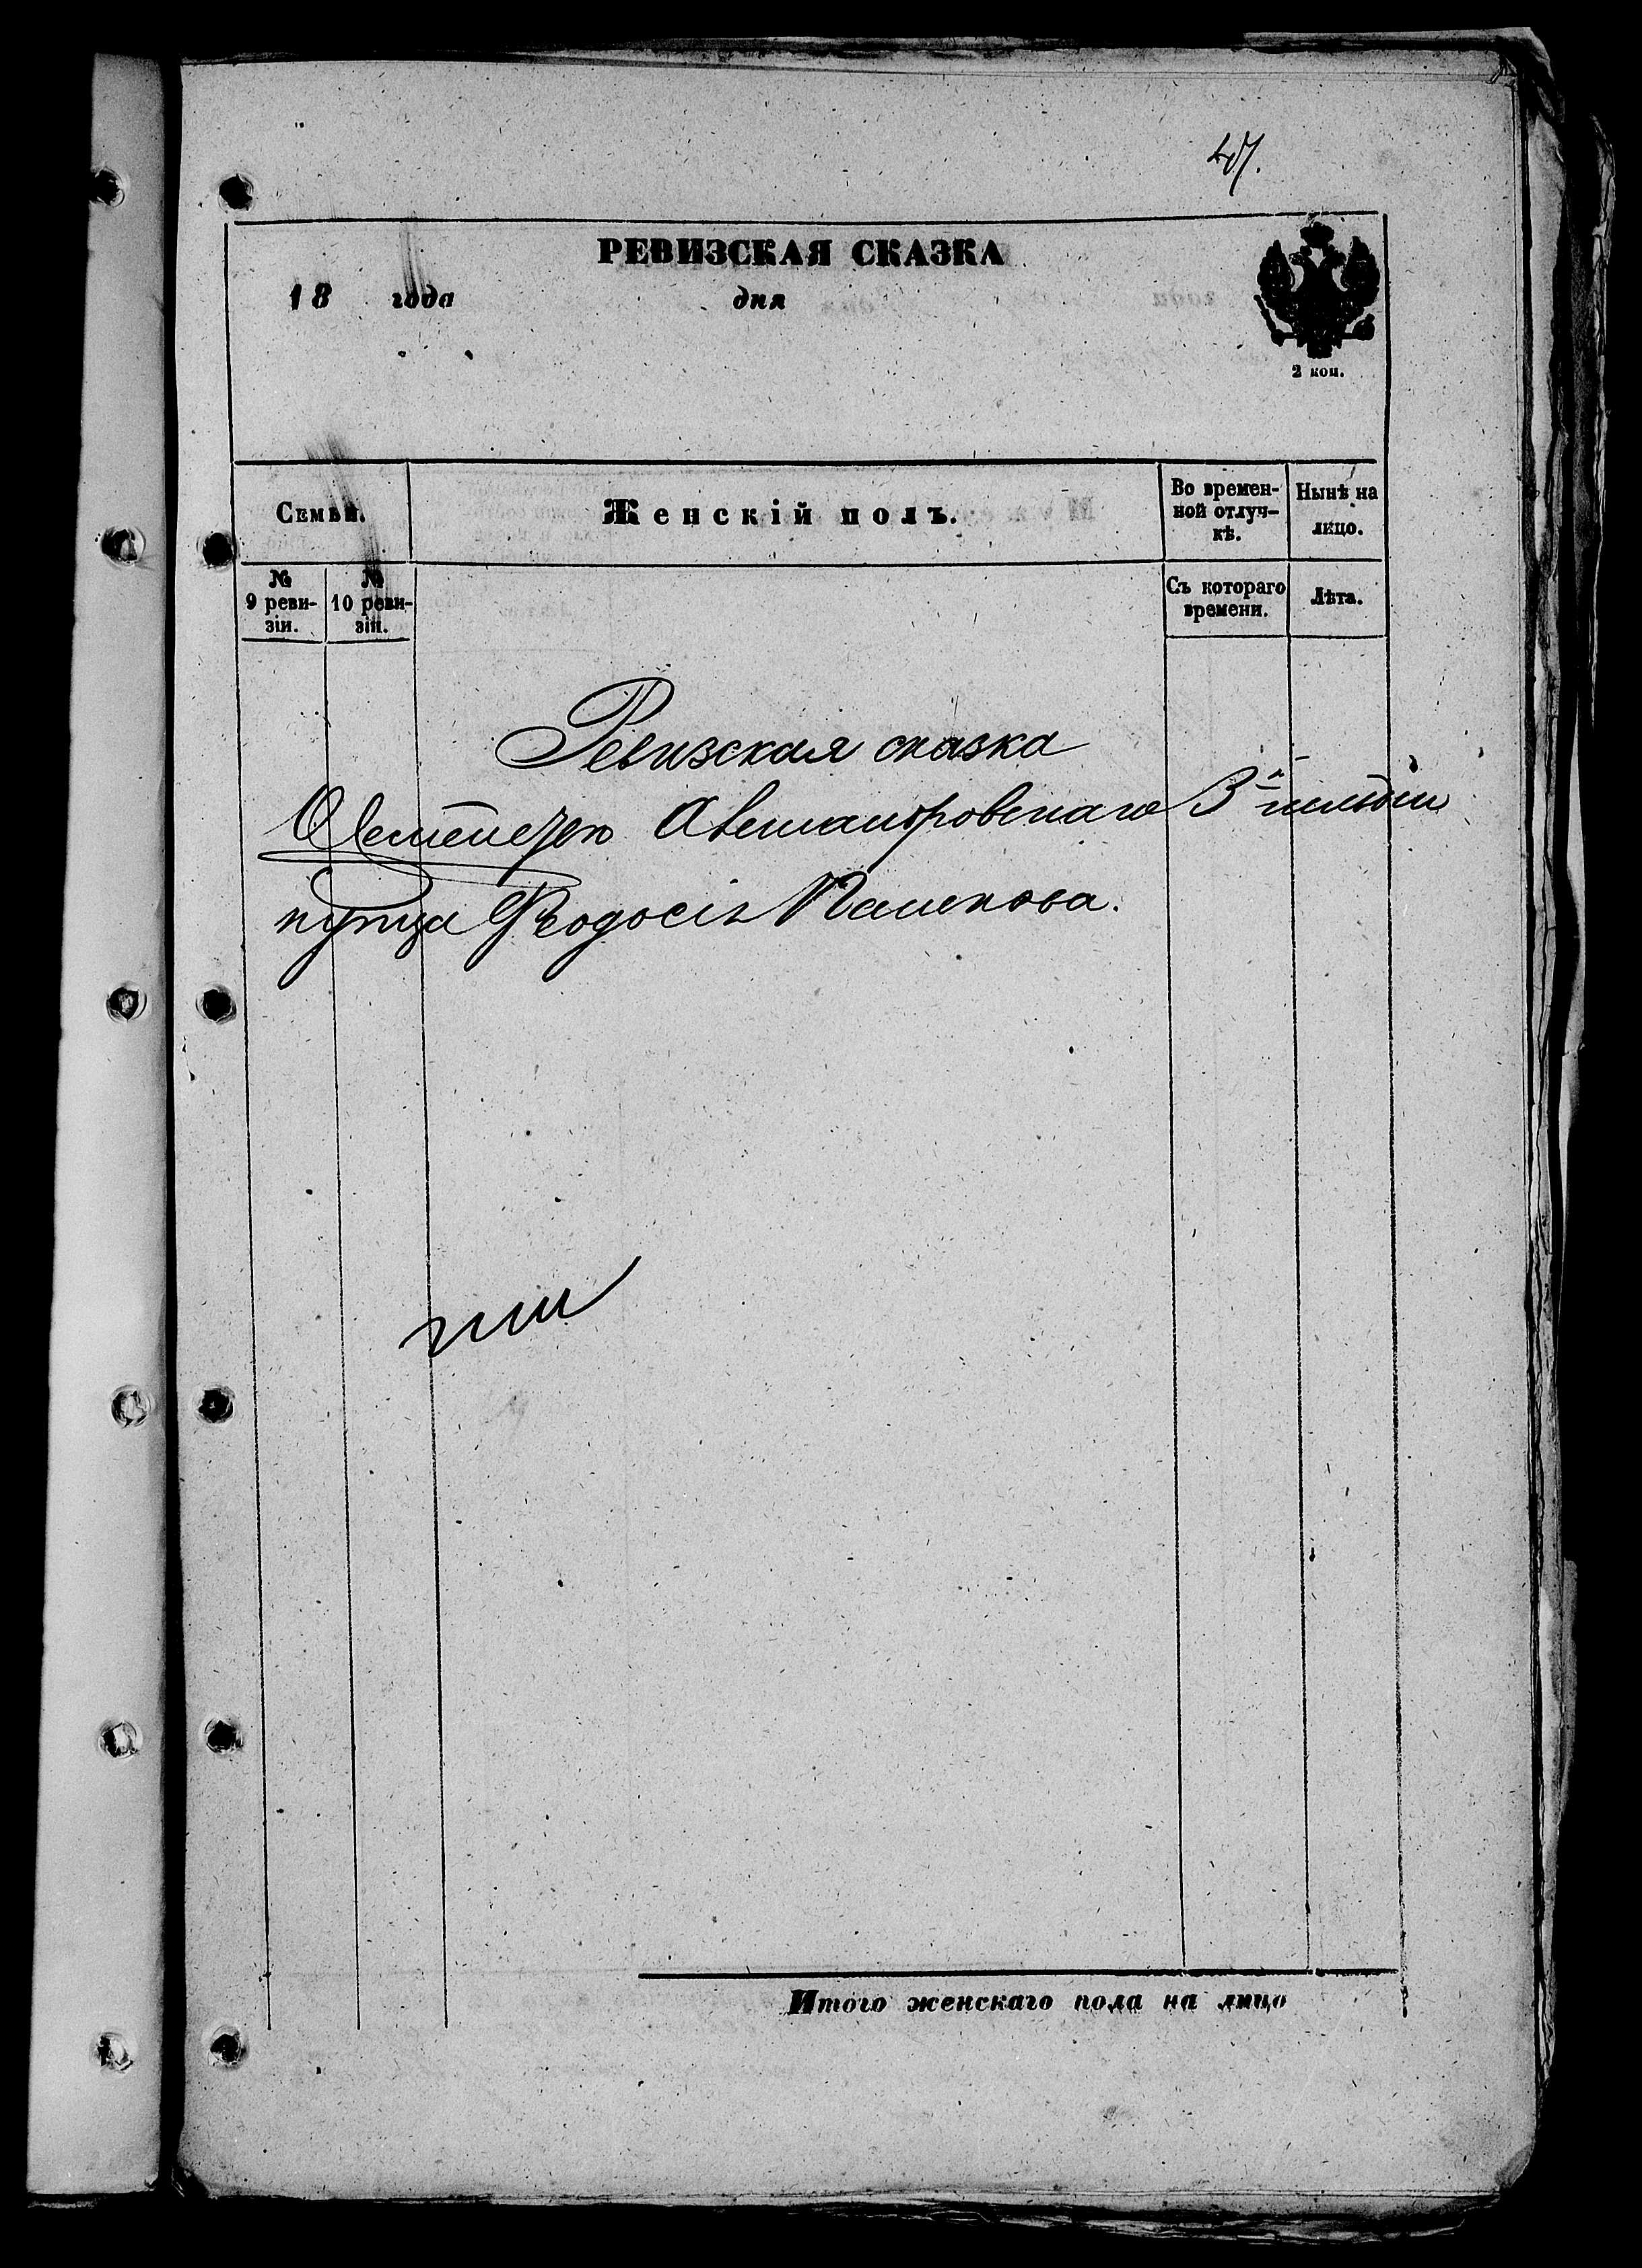 47.
РЕВИЗСКАЯ СКАЗКА
18 года дня
2 коп.
Семьи.
Женскій полъ.
Во времен-
ной отлуч-
кѣ.
Нынѣ на
лицо.
№
9 реви-
зіи.
№
10 реви-
зіи.
Съ котораго
времени.
Лѣта.
Ревизская сказка
3й гильдіи
купца Феодосія
Итого женскаго пола на лицо